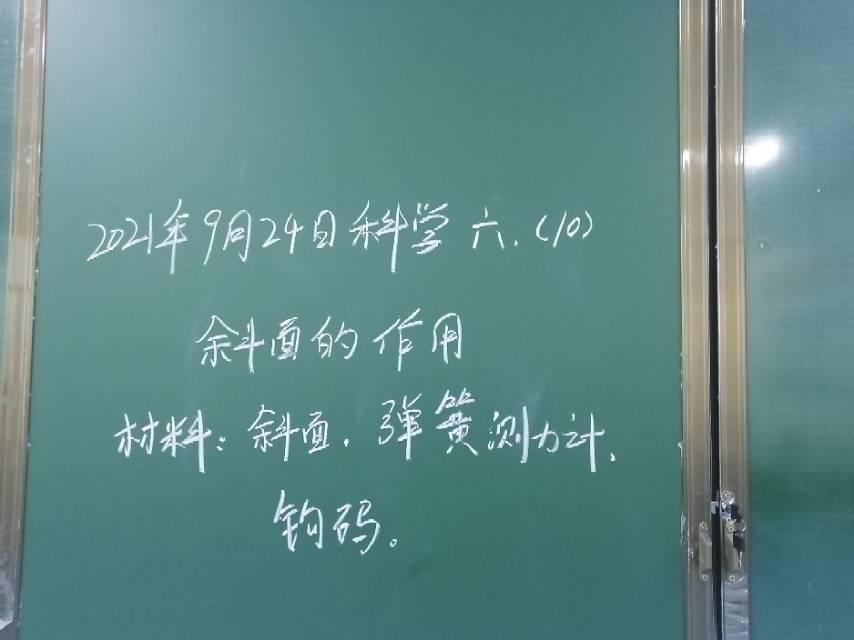 2021年9月24日科学 六.(10)
斜面的作用
材料:斜面、弹簧测力计、
钩码。